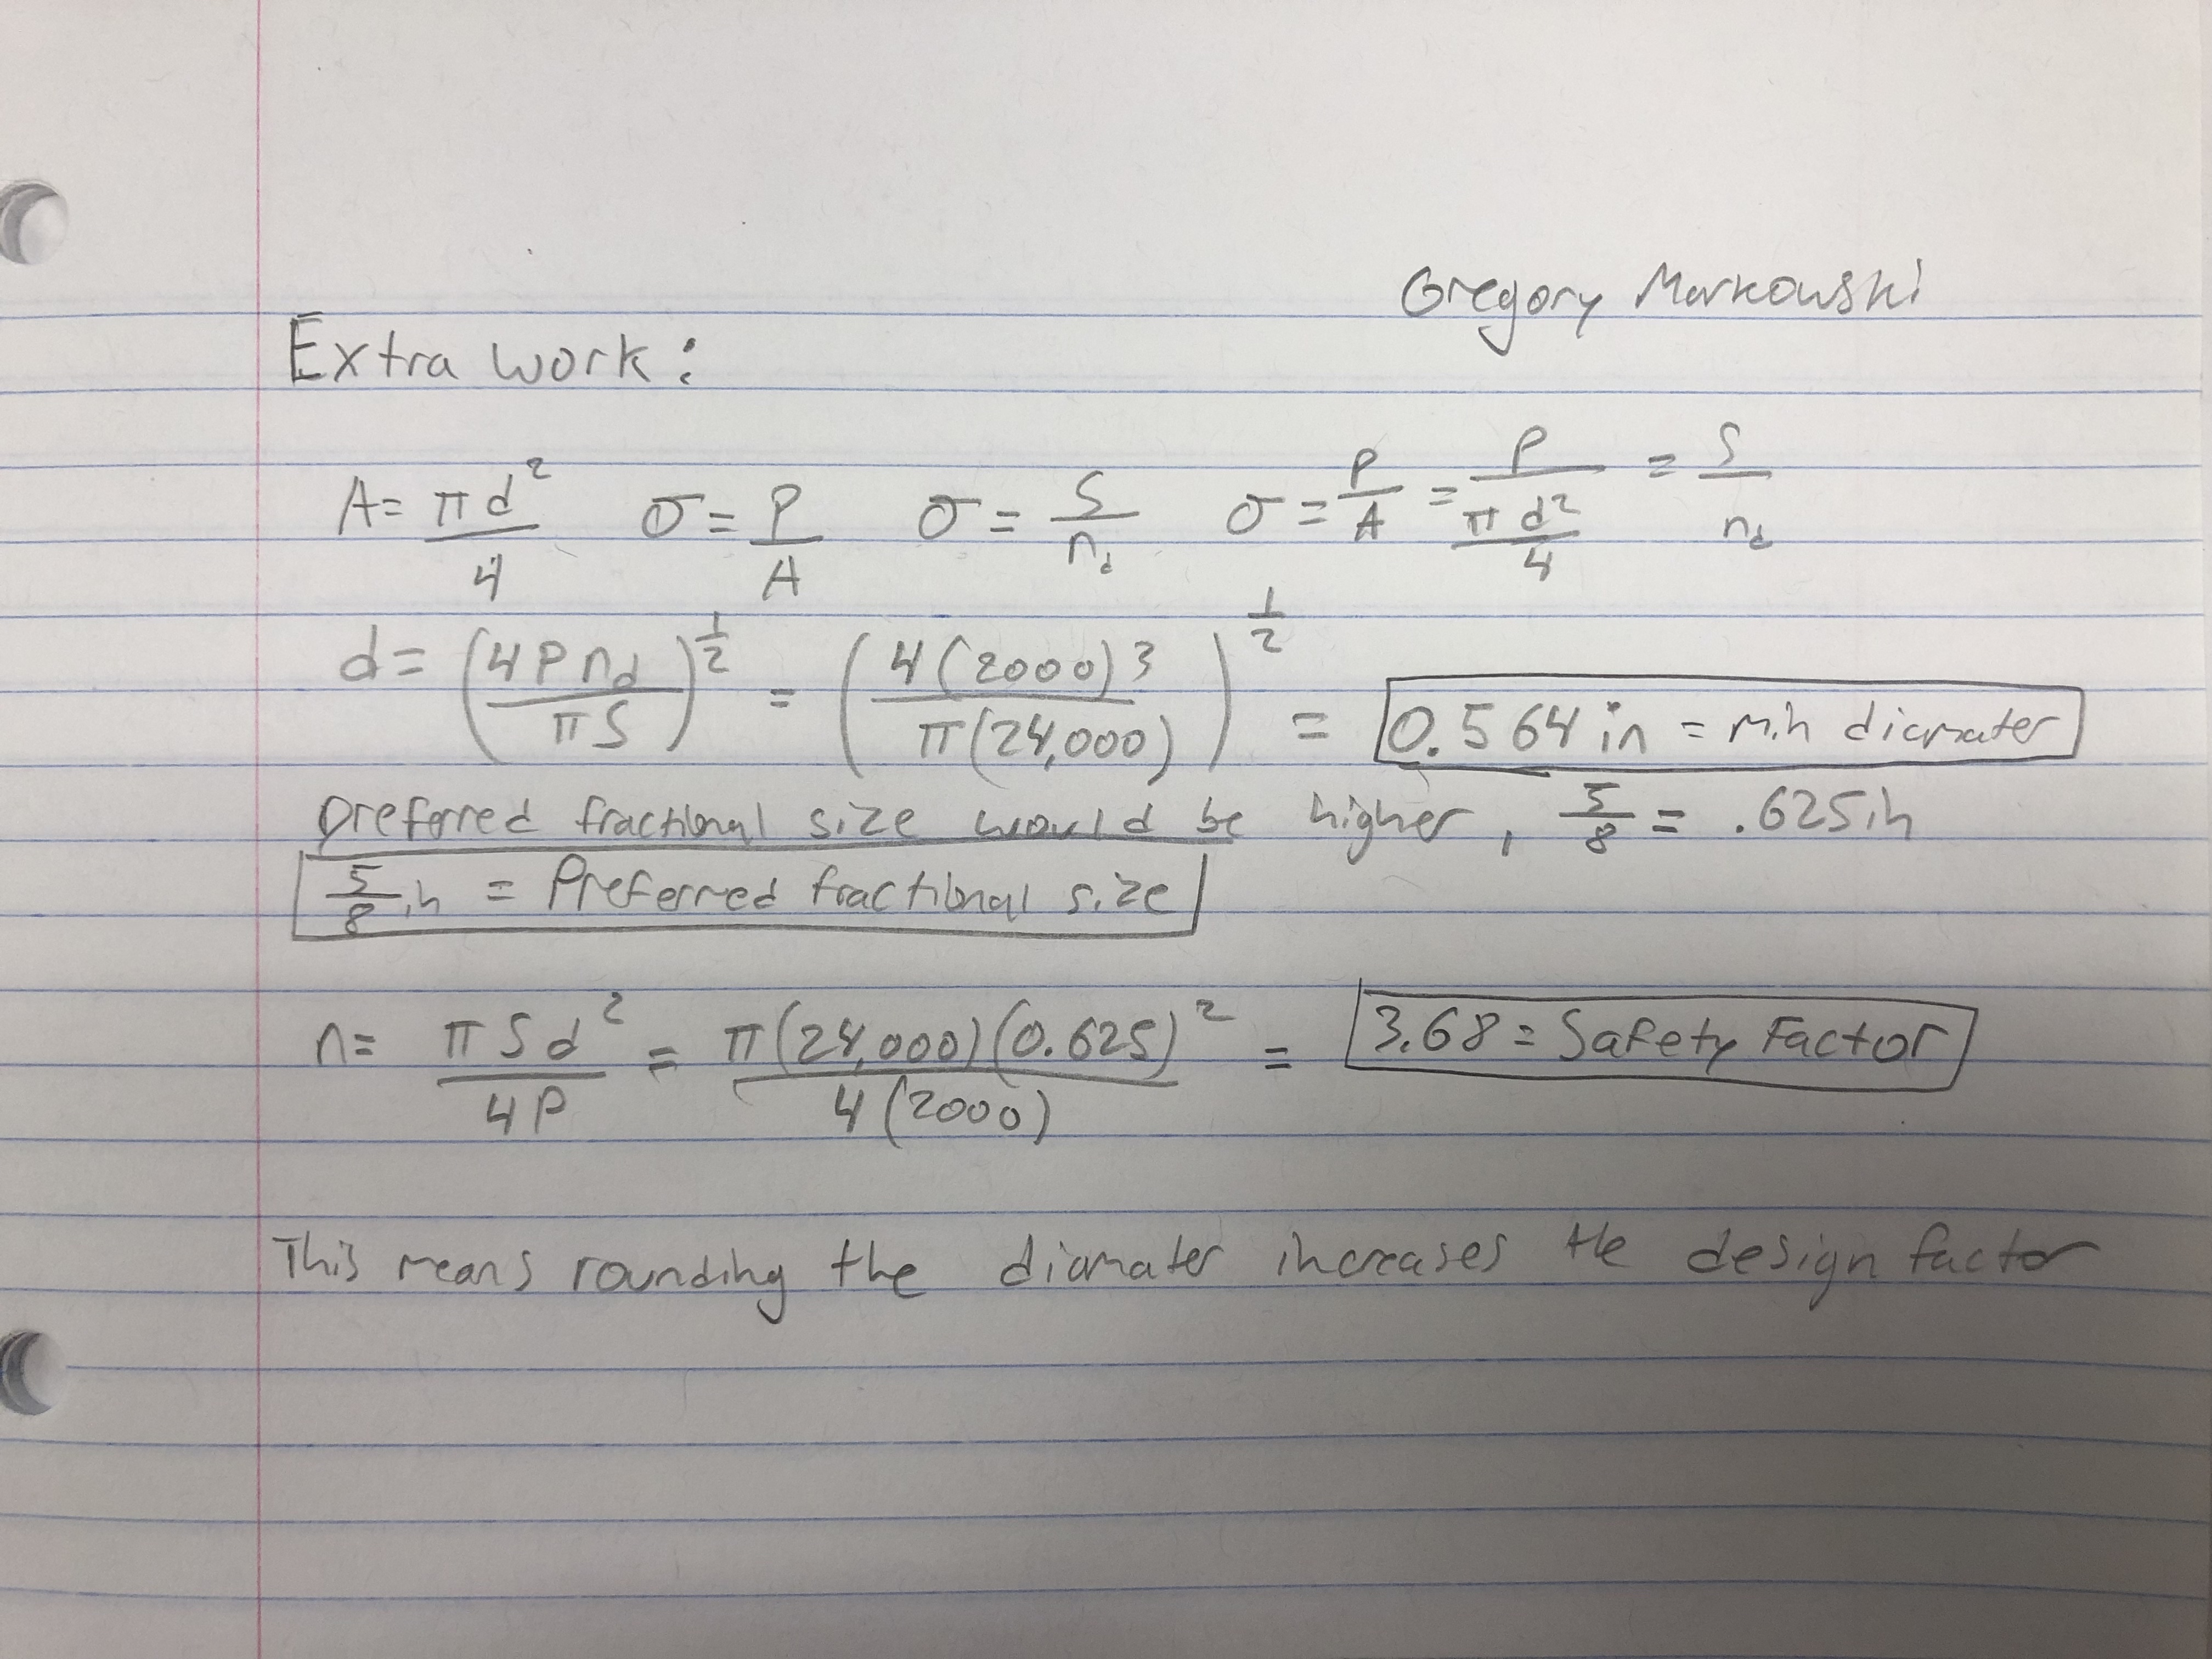 Gregory Markowski
Extra work:
A = πd²/4   σ = P/A   σ = S/n_d   σ = P/A = P/(πd²/4) = S/n_d
d = (4Pn_d/πS)^(1/2) = (4(2000)3/π(24,000))^(1/2) = 0.564 in = min diamater
preferred fractional size would be higher, 5/8 = .625in
5/8 in = Preferred fractional size
n = πSd²/4P = π(24,000)(0.625)²/4(2000) = 3.68 = Safety Factor
This means rounding the diamater increases the design factor